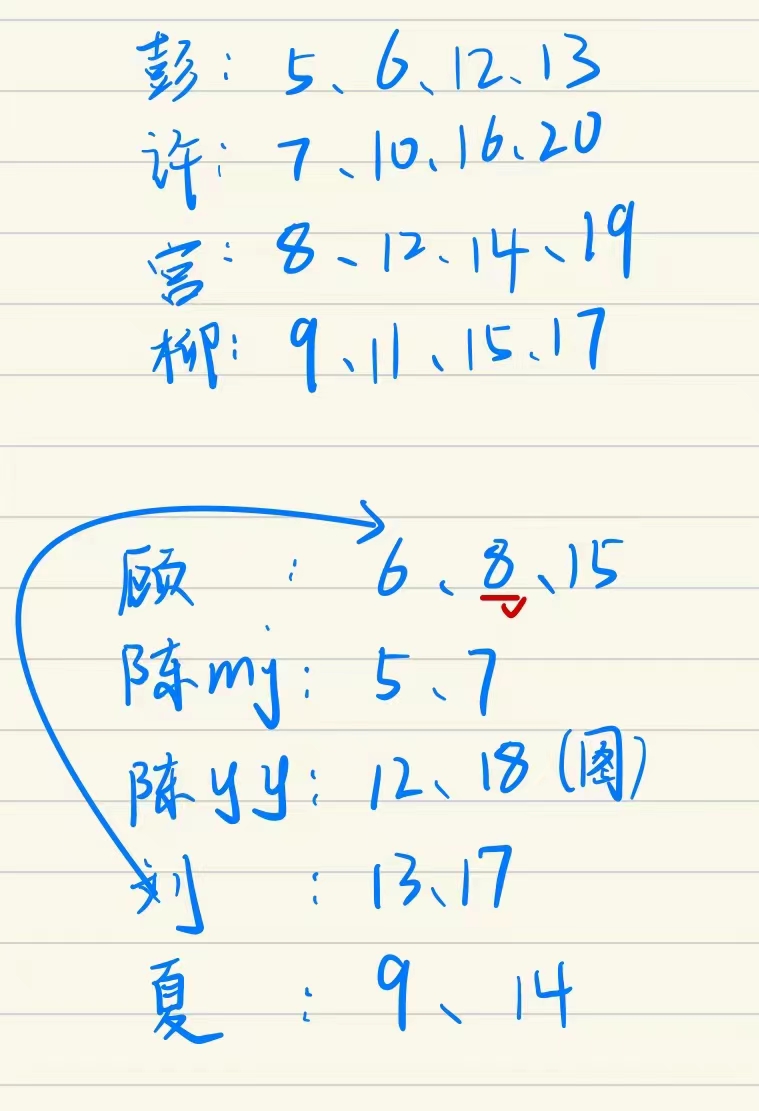 彭：5、6、12、13
许：7、10、16、20
宫：8、12、14、19
柳：9、11、15、17
顾：6、8、15
陈mj：5、7
陈yy：12、18（图）
刘：13、17
夏：9、14